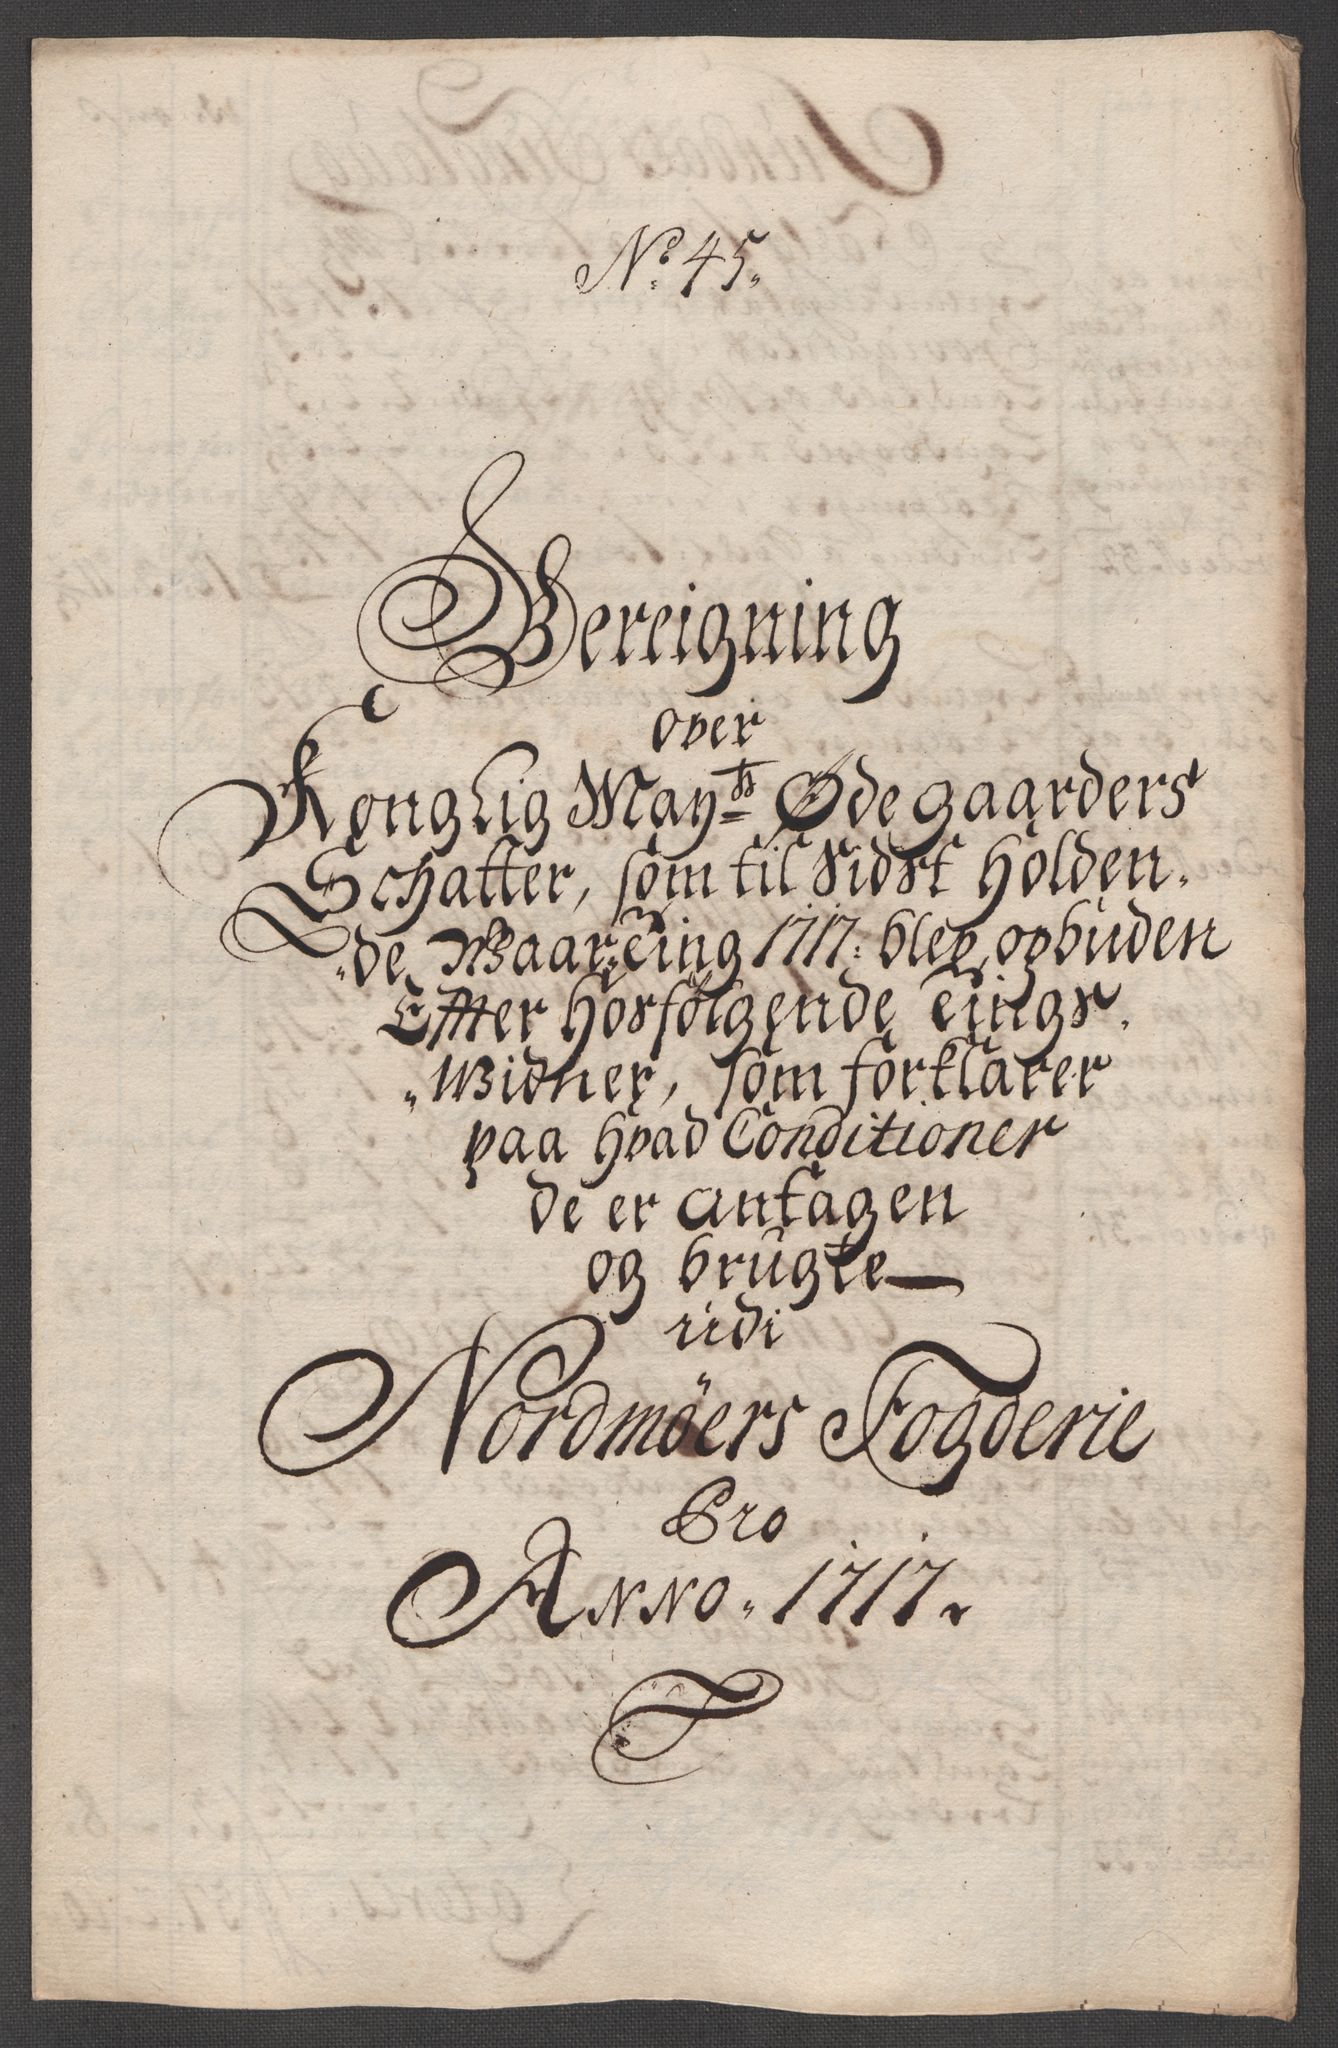 No. 45.
Bereigning
over
Konglig Mayts Ødegaarders
Schatter, som til Sidst Holden-
"de Waar-Ting 1717. blev opbuden
Effter hosfølgende Tings-
"Widner, som forklarer
paa hvad Conditioner
de er antagen
og brugte
udi
Nordmöers Fogderie
Pro
Anno. 1717.